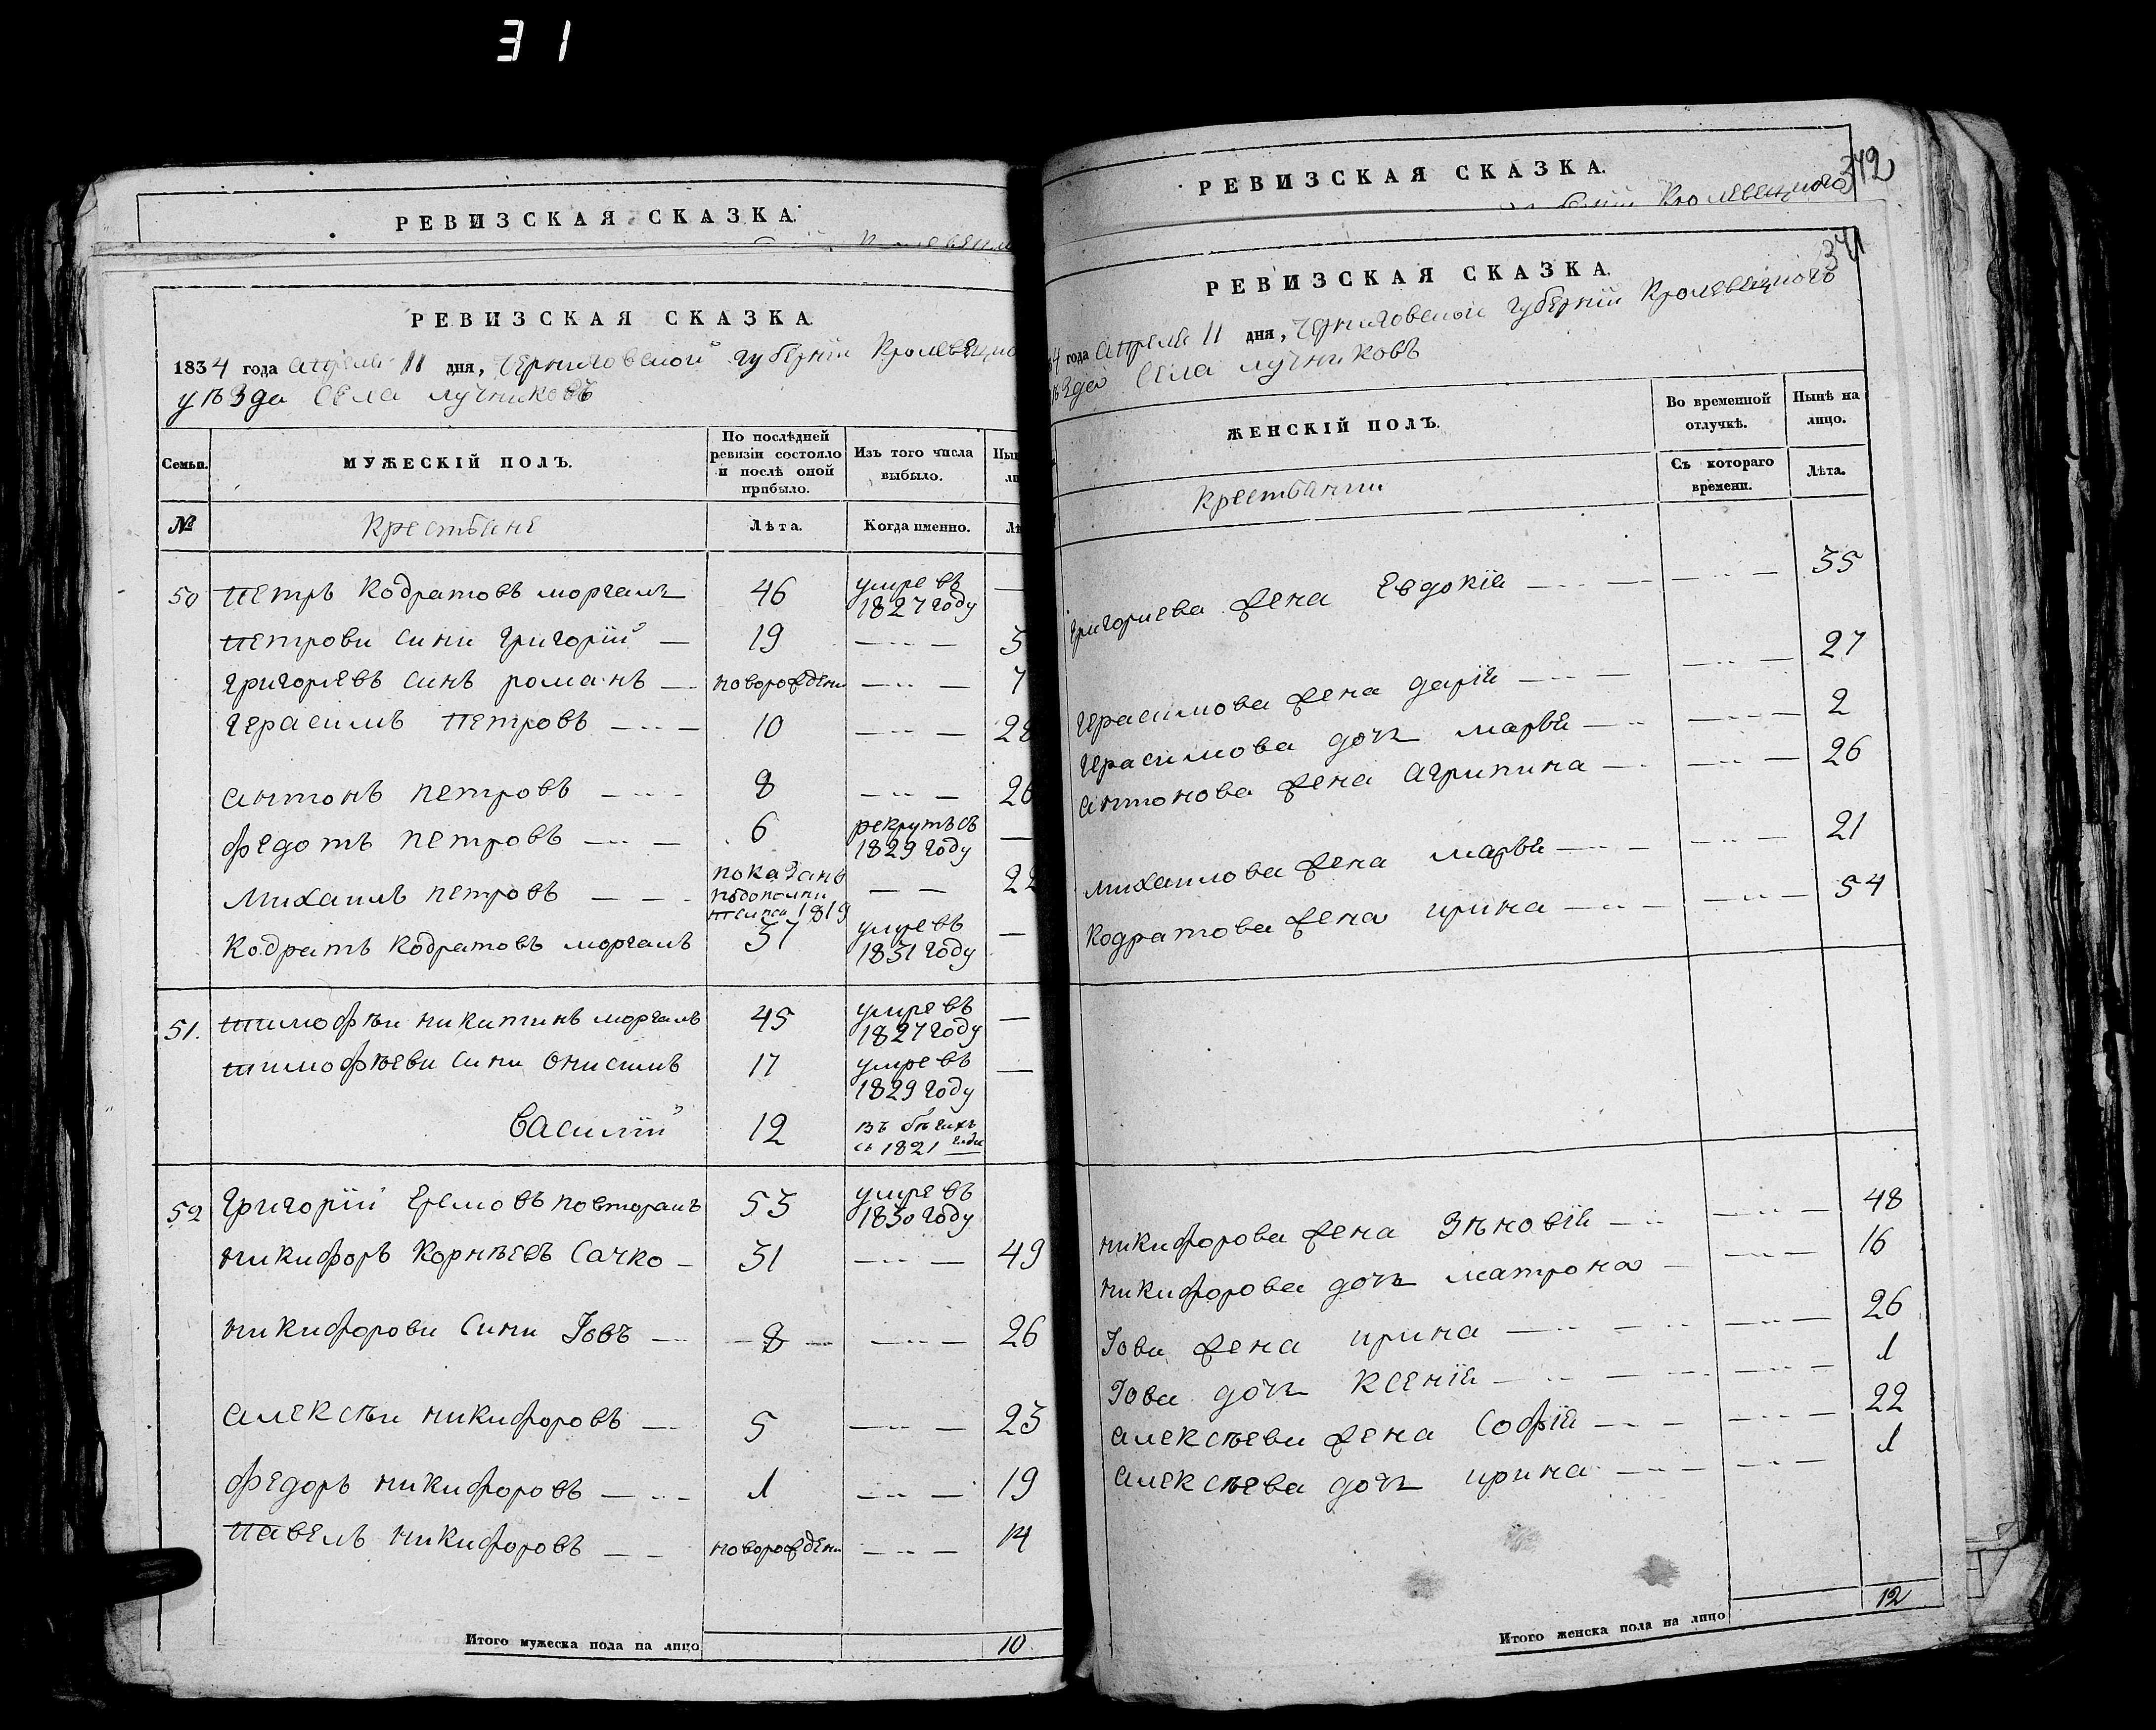 31
РЕВИЗСКАЯ СКАЗКА.
РЕВИЗСКАЯ СКАЗКА.
1834 года апреля 11 дня, Черниговской губернии Кролевецко
уѣзда Села лучниковъ
Семьи.
МУЖЕСКІЙ ПОЛЪ.
По послѣдней ревизіи состояло и послѣ оной прибыло.
Изъ того числа выбыло.
№
Крестьяне
Лѣта.
Когда именно.
50 Петръ Кодратовъ моргалъ 46 умре въ 1827 году —
Петрови сини Григорій — 19 — 3
Григорієвъ синъ романъ — новорожденъ — 7
Герасимъ Петровъ — 10 — 28
антонъ петровъ — 8 — 26
федотъ петровъ — 6 рекрутъ съ 1829 году —
Михаилъ петровъ — показанъ 1819 — 22
Кодратъ Кодратовъ моргалъ 37 умре въ 1831 году —
51. Тимофѣи никитинъ моргалъ 45 умре въ 1827 году —
Тимофѣеви сини Онисимъ 17 умре въ 1829 году —
Василій 12 въ бѣгахъ съ 1821 года
52 Григорій Еремовъ повторакъ 53 умре въ 1830 году
никифоръ Корнѣевъ Сачко — 31 — 49
никифорови Сини Іовъ — 8 — 26
алексѣи никифоровъ — 5 — 23
федоръ никифоровъ — 1 — 19
павелъ никифоровъ — новорожденъ — 14
Итого мужеска пола на лицо 10
РЕВИЗСКАЯ СКАЗКА.
Кролевецкого
372
371
РЕВИЗСКАЯ СКАЗКА.
4 года апреля 11 дня, Черниговской губерніи Кролевецкого
ѣзда Села лучниковъ
ЖЕНСКІЙ ПОЛЪ.
Во временной отлучкѣ.
Нынѣ на лицо.
Крестьянки
Съ котораго времени.
Лѣта.
Григориева жена Евдокія — 35
Герасимова жена дарія — 27
Герасимова дочь марѳа — 2
антонова жена Агрипина — 26
михаилова жена марѳа — 21
Кодратова жена ирина — 54
никифорова жена Зѣновія — 48
никифорова дочь матрона — 16
Іова жена ирина — 26
Іова дочь Ксенія — 1
алексѣева жена Софія — 22
алексѣева дочь ирина — 1
Итого женска пола на лицо 12